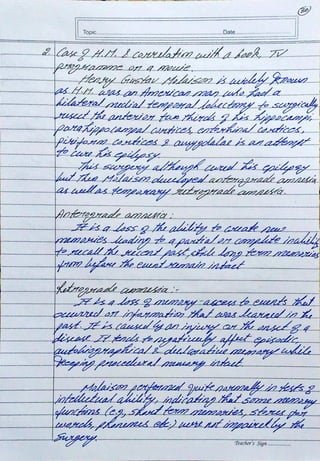 20
Topic Date
2. Case of H.M. & correlation with a book, TV
programme or a movie.
Henry Gustav Molaison is widely known
as H.M. was an American man who had a
bilateral medial temporal lobectomy to surgically
resect the anterior two thirds of his hippocampi,
parahippocampal cortices, entorhinal cortices,
piriform cortices & amygdalae in an attempt
to cure his epilepsy.
This surgery although cured his epilepsy
but then Molaison developed anterograde amnesia
as well as temporary retrograde amnesia.
Anterograde amnesia :
It is a loss of the ability to create new
memories leading to a partial or complete inability
to recall the recent past, while long term memories
from before the event remain intact
Retrograde amnesia :-
It is a loss of memory-access to events that
occurred or information that was learned in the
past. It is caused by an injury or the onset of a
disease. It tends to negatively affect episodic,
autobiographical & declarative memory while
keeping procedural memory intact.
Molaison performed quite normally in tests of
intellectual ability, indicating that some memory
functions (eg, short term memories, stores for
words, phonemes etc.) were not impaired by the
surgery.
Teacher's Sign